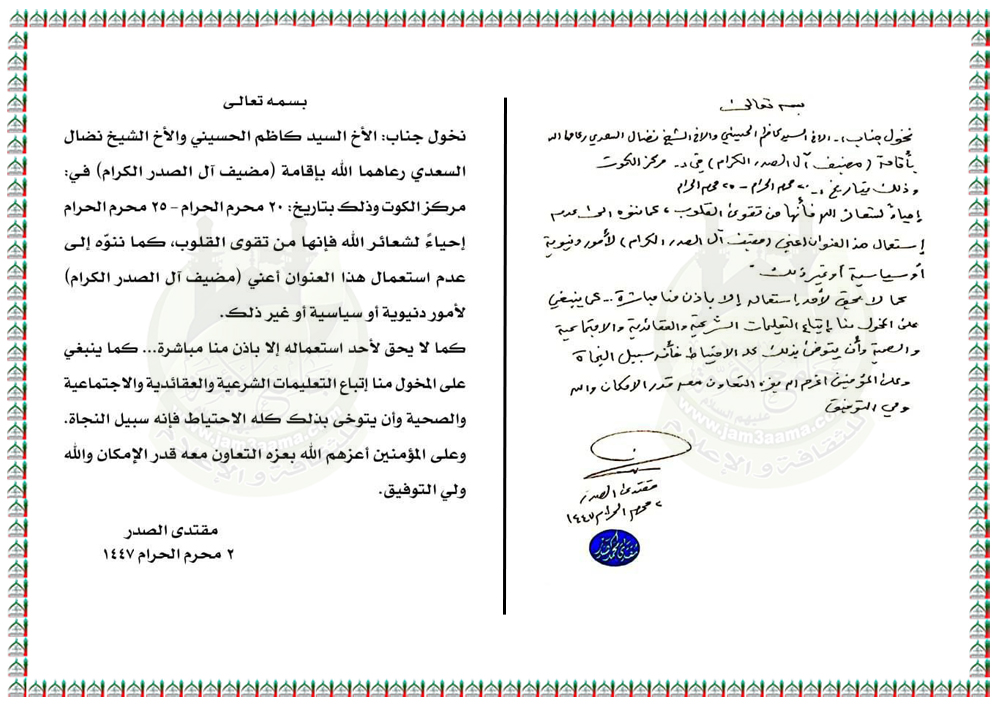 بسم تعالى
نخول جناب:. الاخ السيد كاظم الحسيني والاخ الشيخ نضال السعدي رعاهما الله
بأقامة (مضيف آل الصدر الكرام) في:. مركز الكوت
وذلك بتاريخ:. ٢٠ محرم الحرام - ٢٥ محرم الحرام
إحياءً لشعائر الله فأنها من تقوى القلوب، كما ننوه الى عدم
إستعمال هذا العنوان اعني (مضيف آل الصدر الكرام) لأمور دنيوية
أو سياسية أو غير ذلك.
كما لا يحق لأحد استعماله إلا باذن منا مباشرة... كما ينبغي
على المخول منا إتباع التعليمات الشرعية والعقائدية والاجتماعية
والصحية وأن يتوخى بذلك كله الاحتياط فأنه سبيل النجاة
وعلى المؤمنين اعزهم الله بعزه التعاون معه قدر الامكان والله
ولي التوفيق
مقتدى الصدر
٢ محرم الحرام ١٤٤٧
بسمه تعالى
نخول جناب: الأخ السيد كاظم الحسيني والأخ الشيخ نضال
السعدي رعاهما الله بإقامة (مضيف آل الصدر الكرام) في:
مركز الكوت وذلك بتاريخ: ٢٠ محرم الحرام - ٢٥ محرم الحرام
إحياءً لشعائر الله فإنها من تقوى القلوب، كما ننوّه إلى
عدم استعمال هذا العنوان أعني (مضيف آل الصدر الكرام)
لأمور دنيوية أو سياسية أو غير ذلك.
كما لا يحق لأحد استعماله إلا باذن منا مباشرة... كما ينبغي
على المخول منا إتباع التعليمات الشرعية والعقائدية والاجتماعية
والصحية وأن يتوخى بذلك كله الاحتياط فإنه سبيل النجاة.
وعلى المؤمنين أعزهم الله بعزه التعاون معه قدر الإمكان والله
ولي التوفيق.
مقتدى الصدر
٢ محرم الحرام ١٤٤٧
www.jam3aama.com
للثقافة و الإعلام
www.jam3aama.com
للثقافة و الإعلام